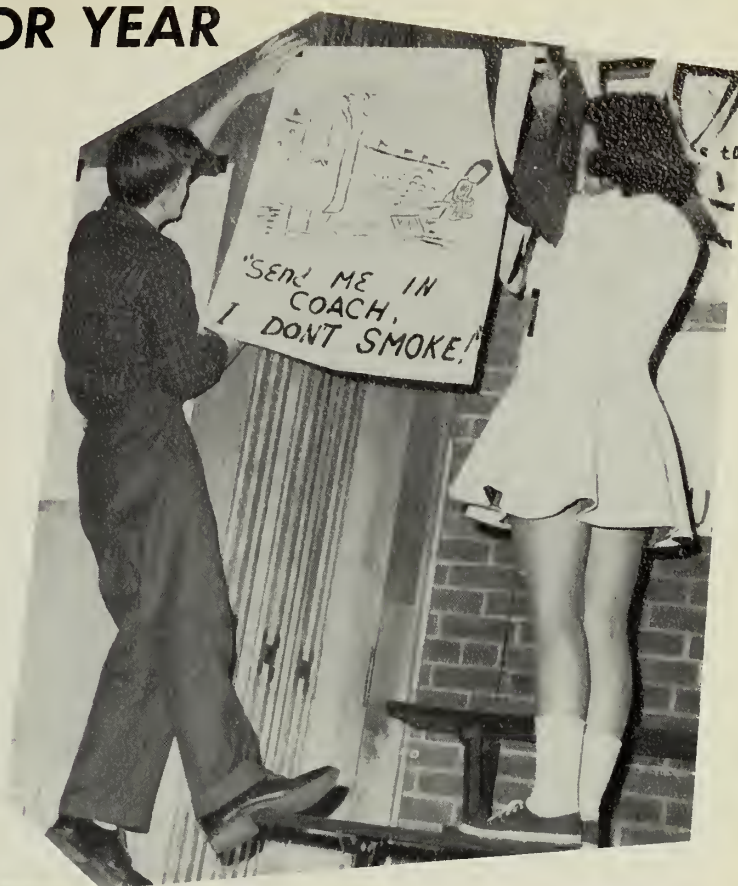 OR YEAR
"SEnd ME IN
COACH,
I DONT SMOKE!"